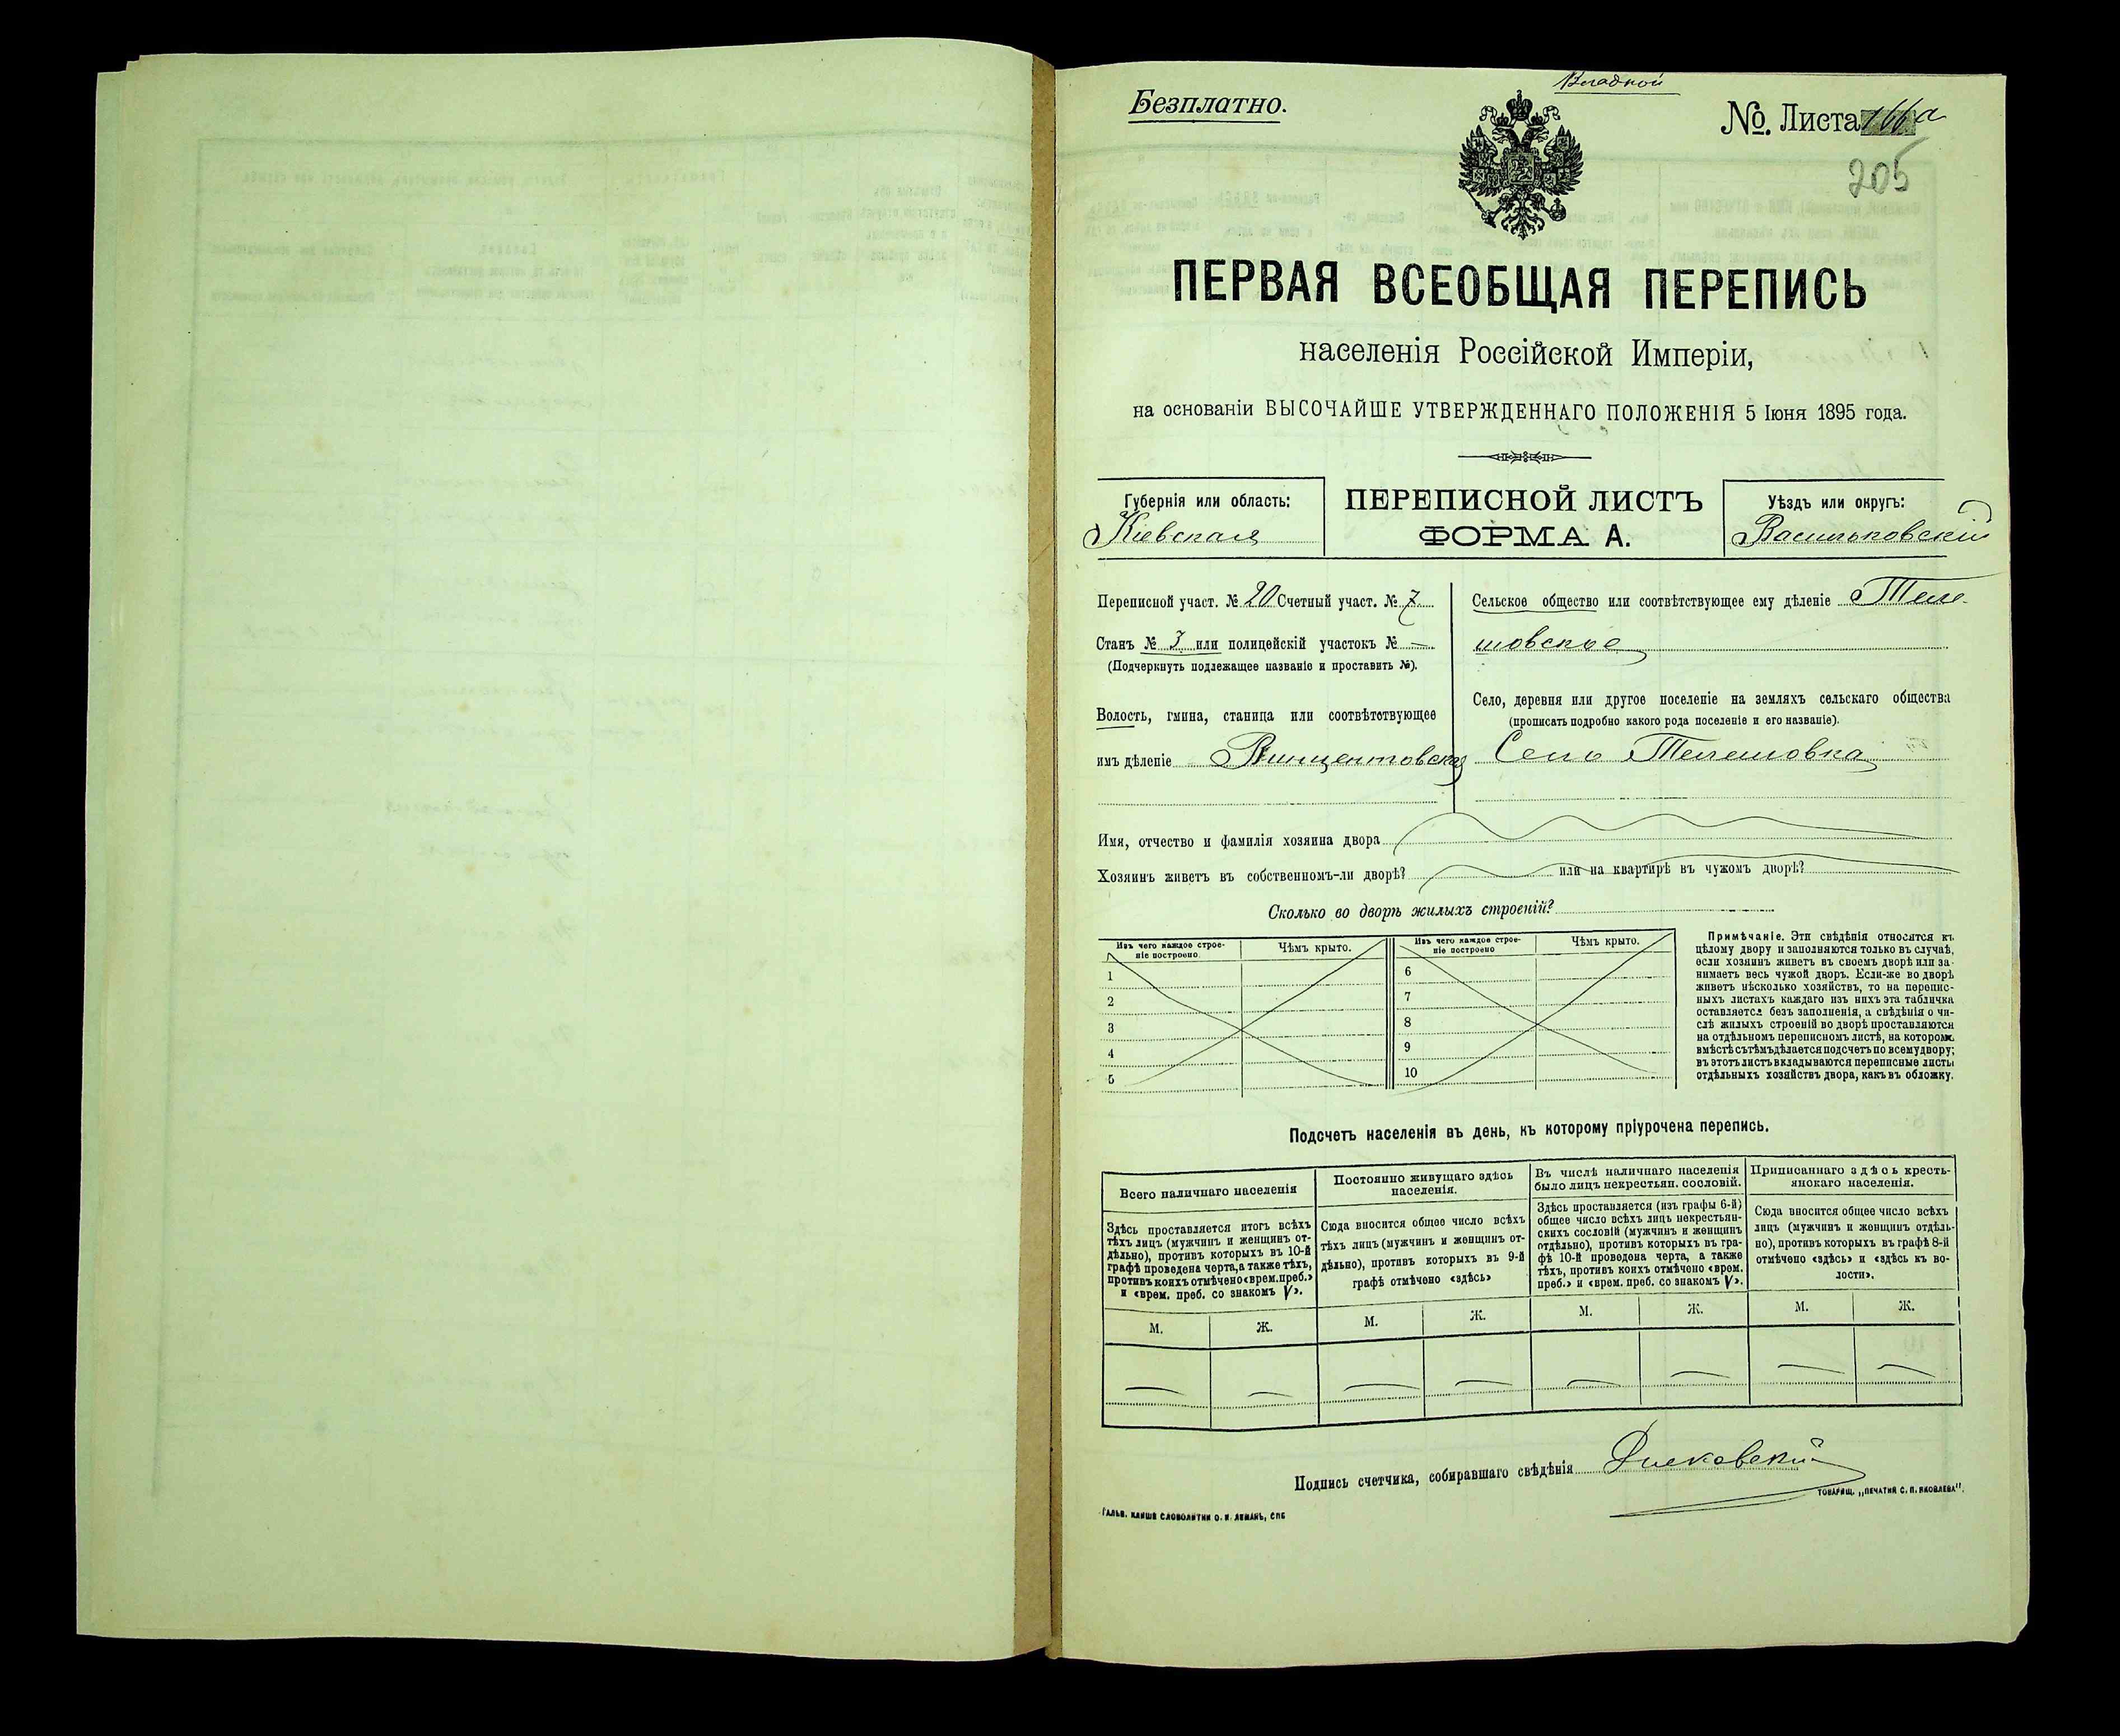 Вкладной
Безплатно.
№. Листа 166 а
205
ПЕРВАЯ ВСЕОБЩАЯ ПЕРЕПИСЬ
населенія Россійской Имперіи,
на основаніи ВЫСОЧАЙШЕ УТВЕРЖДЕННАГО ПОЛОЖЕНІЯ 5 Іюня 1895 года.
Губернія или область:
Кіевская
ПЕРЕПИСНОЙ ЛИСТЪ
ФОРМА А.
Уѣздъ или округъ:
Васильковскій
Переписной участ. № 20 Счетный участ. № 7
Станъ № 3 или полицейскій участокъ № —
(Подчеркнуть подлежащее названіе и проставить №).
Волость, гмина, станица или соотвѣтствующее
имъ дѣленіе Винцентовская
Сельское общество или соотвѣтствующее ему дѣленіе Теле-
шовское
Село, деревня или другое поселеніе на земляхъ сельскаго общества
(прописать подробно какого рода поселеніе и его названіе).
Село Телешовка
Имя, отчество и фамилія хозяина двора
Хозяинъ живетъ въ собственномъ-ли дворѣ? или на квартирѣ въ чужомъ дворѣ?
Сколько во дворѣ жилыхъ строеній?
Изъ чего каждое строе-
ніе построено.
Чѣмъ крыто.
1
2
3
4
5
Изъ чего каждое строе-
ніе построено
Чѣмъ крыто.
6
7
8
9
10
Примѣчаніе. Эти свѣдѣнія относятся къ
цѣлому двору и заполняются только въ случаѣ,
если хозяинъ живетъ въ своемъ дворѣ или за-
нимаетъ весь чужой дворъ. Если-же во дворѣ
живетъ нѣсколько хозяйствъ, то на перепис-
ныхъ листахъ каждаго изъ нихъ эта табличка
оставляется безъ заполненія, а свѣдѣнія о чи-
слѣ жилыхъ строеній во дворѣ проставляются
на отдѣльномъ переписномъ листѣ, на которомъ
вмѣстѣ съ тѣмъ дѣлается подсчетъ по всему двору;
въ этотъ листъ вкладываются переписные листы
отдѣльныхъ хозяйствъ двора, какъ въ обложку.
Подсчетъ населенія въ день, къ которому пріурочена перепись.
Всего наличнаго населенія
Здѣсь проставляется итогъ всѣхъ
тѣхъ лицъ (мужчинъ и женщинъ от-
дѣльно), противъ которыхъ въ 10-й
графѣ проведена черта, а также тѣхъ,
противъ коихъ отмѣчено «врем. преб.»
и «врем. преб. со знакомъ V».
М. Ж.
— —
Постоянно живущаго здѣсь
населенія.
Сюда вносится общее число всѣхъ
тѣхъ лицъ (мужчинъ и женщинъ от-
дѣльно), противъ которыхъ въ 9-й
графѣ отмѣчено «здѣсь»
М. Ж.
— —
Въ числѣ наличнаго населенія
было лицъ некрестьян. сословій.
Здѣсь проставляется (изъ графы 6-й)
общее число всѣхъ лицъ некрестьян-
скихъ сословій (мужчинъ и женщинъ
отдѣльно), противъ которыхъ въ гра-
фѣ 10-й проведена черта, а также
тѣхъ, противъ коихъ отмѣчено «врем.
преб.» и «врем. преб. со знакомъ V».
М. Ж.
— —
Приписаннаго здѣсь кресть-
янскаго населенія.
Сюда вносится общее число всѣхъ
лицъ (мужчинъ и женщинъ отдѣль-
но), противъ которыхъ въ графѣ 8-й
отмѣчено «здѣсь» и «здѣсь къ во-
лости».
М. Ж.
— —
Подпись счетчика, собиравшаго свѣдѣнія
ГАЛЬВ. КЛИШЕ СЛОВОЛИТНИ О. И. ЛЕМАНЪ, СПБ
ТОВАРИЩ. „ПЕЧАТНЯ С. П. ЯКОВЛЕВА".